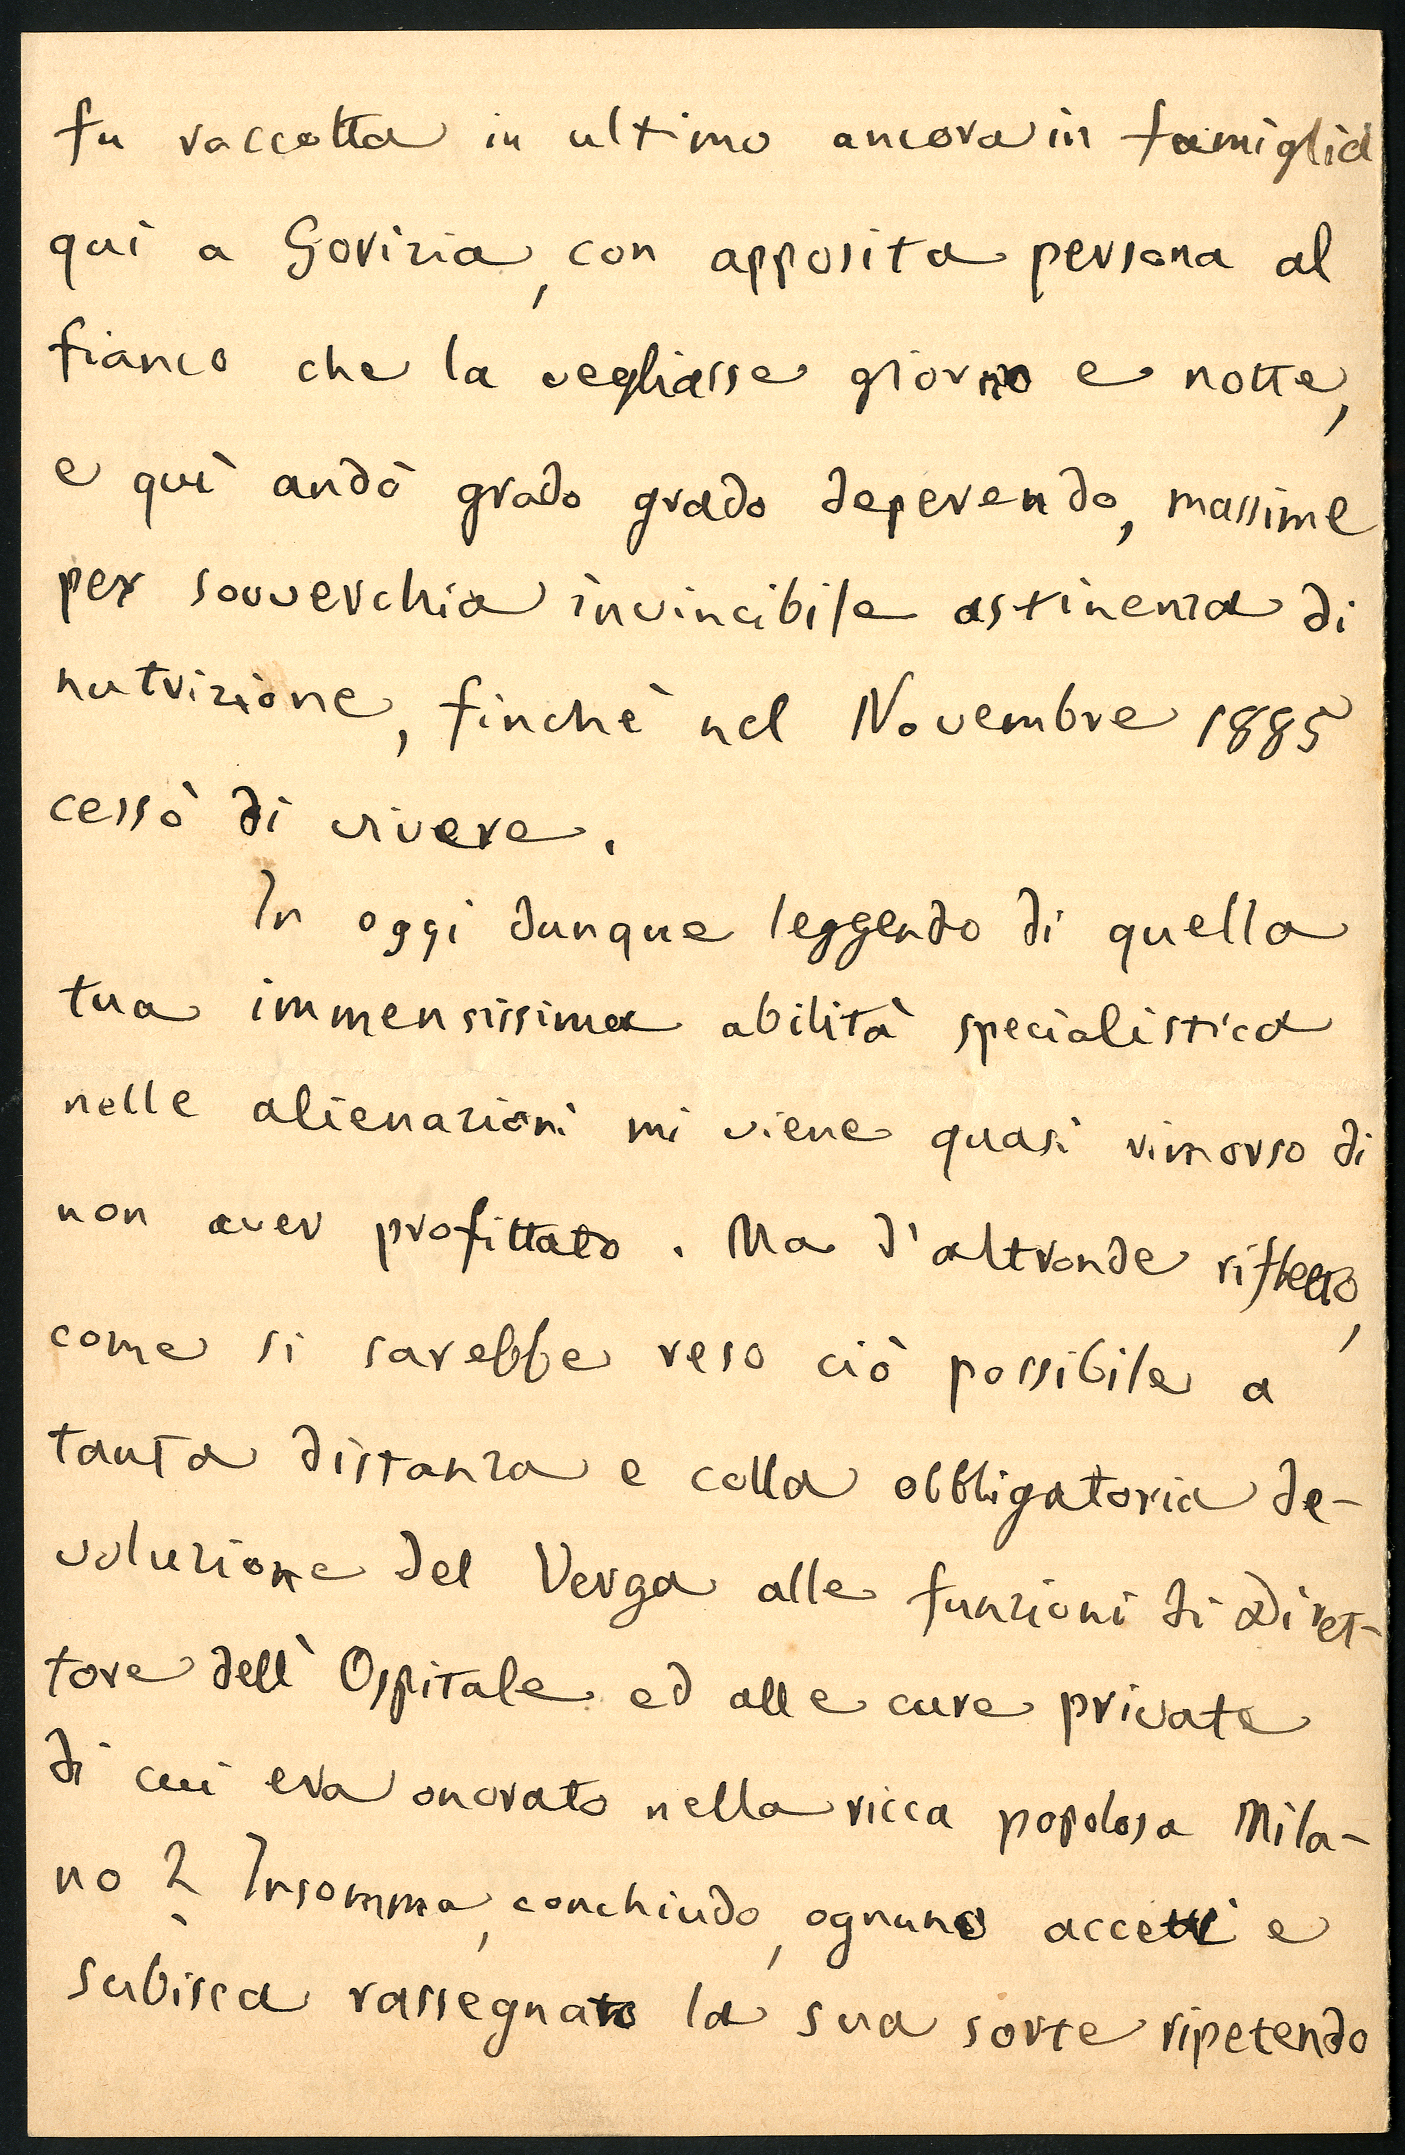 fu raccolta in ultimo ancora in famiglia
qui a Gorizia, con apposita persona al
fianco che la vegliasse giorno e notte,
e quì andò grado grado deperendo, massime
per souverchia invincibile astinenza di
nutrizione, finchè nel Novembre 1885
cessò di vivere.
In oggi dunque leggendo di quella
tua immensissima abilità specialistica
nelle alienazioni mi viene quasi rimorso di
non aver profittato. Ma d'altronde rifletto,
come si sarebbe reso ciò possibile a
tanta distanza e colla obbligatoria de-
voluzione del Verga alle funzioni di Diret-
tore dell'Ospitale ed alle cure private
di cui era onorato nella ricca popolosa Mila-
no? Insomma, conchiudo, ognuno accetti e
subisca rassegnato la sua sorte ripetendo